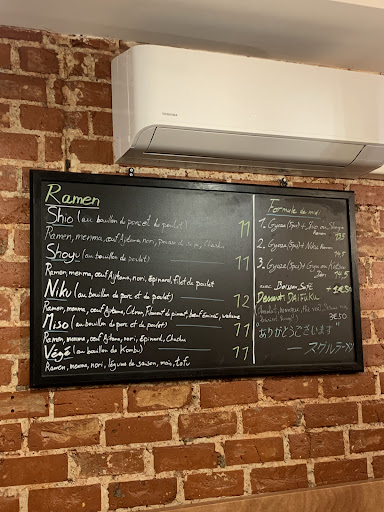 TOSHIBA
Ramen
Shio (au bouillon de porc et du poulet) 11
Ramen, menma, œuf Ajitama, nori, pousse de soja, Chashu
Shoyu (au bouillon de poulet) 11
Ramen, menma, œuf Ajitama, nori, Epinard, filet de poulet
Niku (au bouillon de porc et du poulet) 12
Ramen, menma, œuf Ajitama, Citron, Piment, bœuf émincé, wakame
Miso (au bouillon de porc et du poulet) 11
Ramen, menma, œuf Ajitama, nori, Epinard, Chashu
Végé (au bouillon de Kombu) 11
Ramen, menma, nori, légume de saison, maïs, tofu
Formule de midi
1. Gyoza (5pc) + Shio ou Shoyu
Ramen 13.5
2. Gyoza (5pc) + Niku Ramen
14.5
3. Gyoza (5pc) + Gyu
14.5
avec Boisson Soft
Dessert DAIFUKU
3€50
"ありがとうございます"
スゲルラーメン